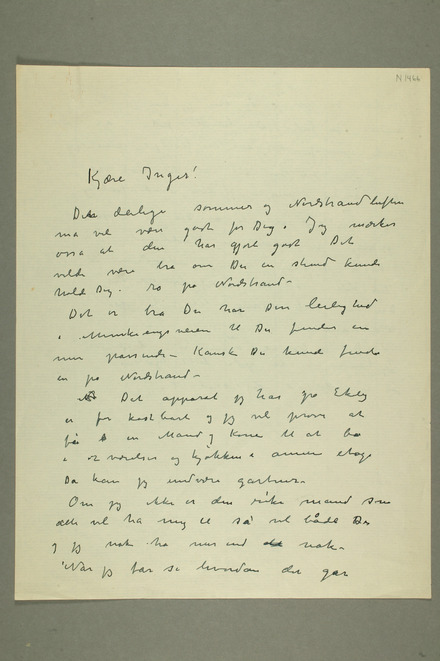 N 1466
Kjære Inger!
Den deilige sommer og Nordstrandluften
må vel være godt for Dig. Jeg mærker
osså at den har gjort godt Det
vilde være bra om Du en stund kunde
holde Dig i ro på Nordstrand –
Det er bra Du har Din leilighed
i Munkengsveien til Du finder en
mer passende – Kanske Du kunde finde
en på Nordstrand –
Det apparat jeg har på Ekely
er for kostbart og jeg vil prøve at
få en Mand og Kone til at bo
i 2 værelser og kjøkken i annen etage
Da kan jeg undvære gartner –
Om jeg ikke er den rike mand som
de vil ha mig til så vil både Du
og jeg nok ha mer end nok –
Når jeg får se hvordan det går